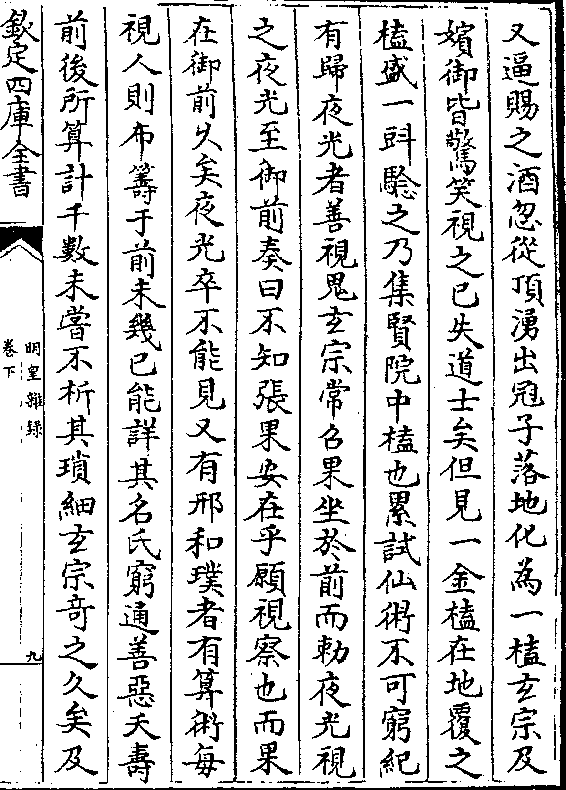 又逼賜之酒忽從頂湧出冠子落地化為一榼玄宗及
嬪御皆驚笑視之已失道士矣但見一金榼在地覆之
榼盛一㪷驗之乃集賢院中榼也累試仙術不可窮紀
有歸夜光者善視鬼玄宗常召果坐於前而勅夜光視
之夜光至御前奏曰不知張果安在乎願視察也而果
在御前乆矣夜光卒不能見又有邢和璞者有算術每
視人則布籌于前未幾已能詳其名氏窮通善惡夭壽
前後所算計千數未嘗不析其瑣細玄宗竒之久矣及
欽定四庫全書
明皇雜錄
卷下
九